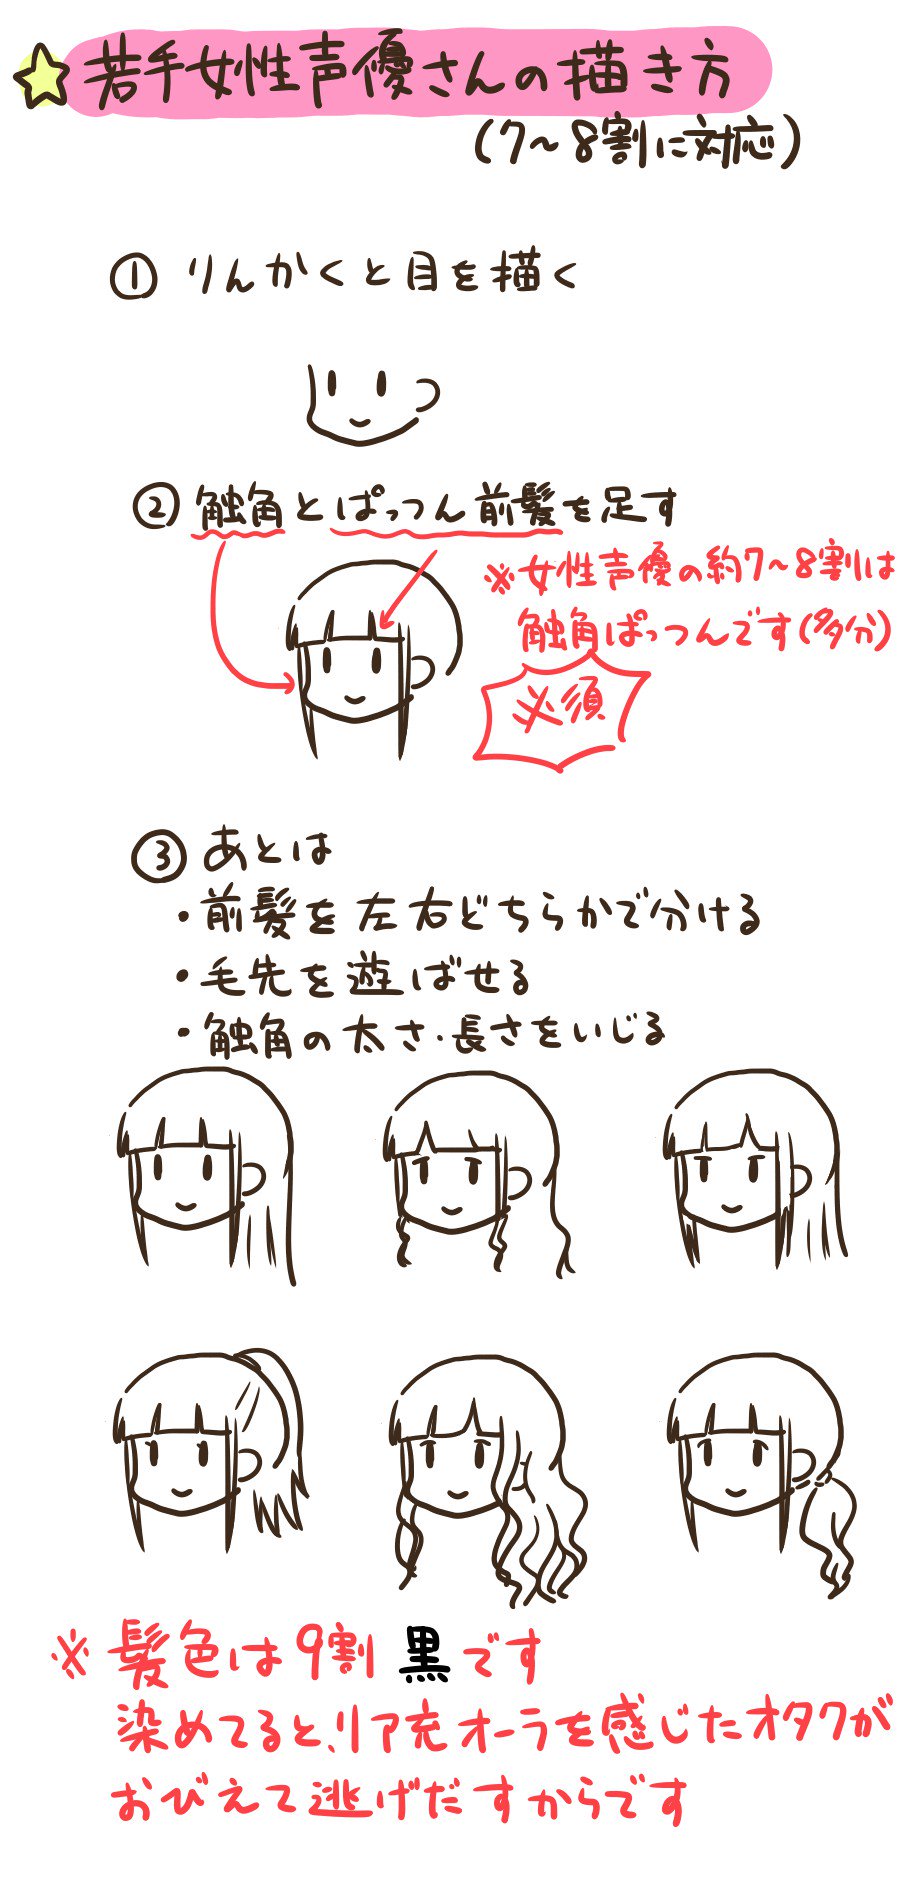 若手女性声優さんの描き方
(7〜8割に対応)
① りんかくと目を描く
② 触角とぱっつん前髪を足す
※女性声優の約7〜8割は
触角ぱっつんです(多分)
必須
③ あとは
・前髪を左右どちらかで分ける
・毛先を遊ばせる
・触角の太さ・長さをいじる
※髪色は9割黒です
染めてると、リア充オーラを感じたオタクが
おびえて逃げだすからです